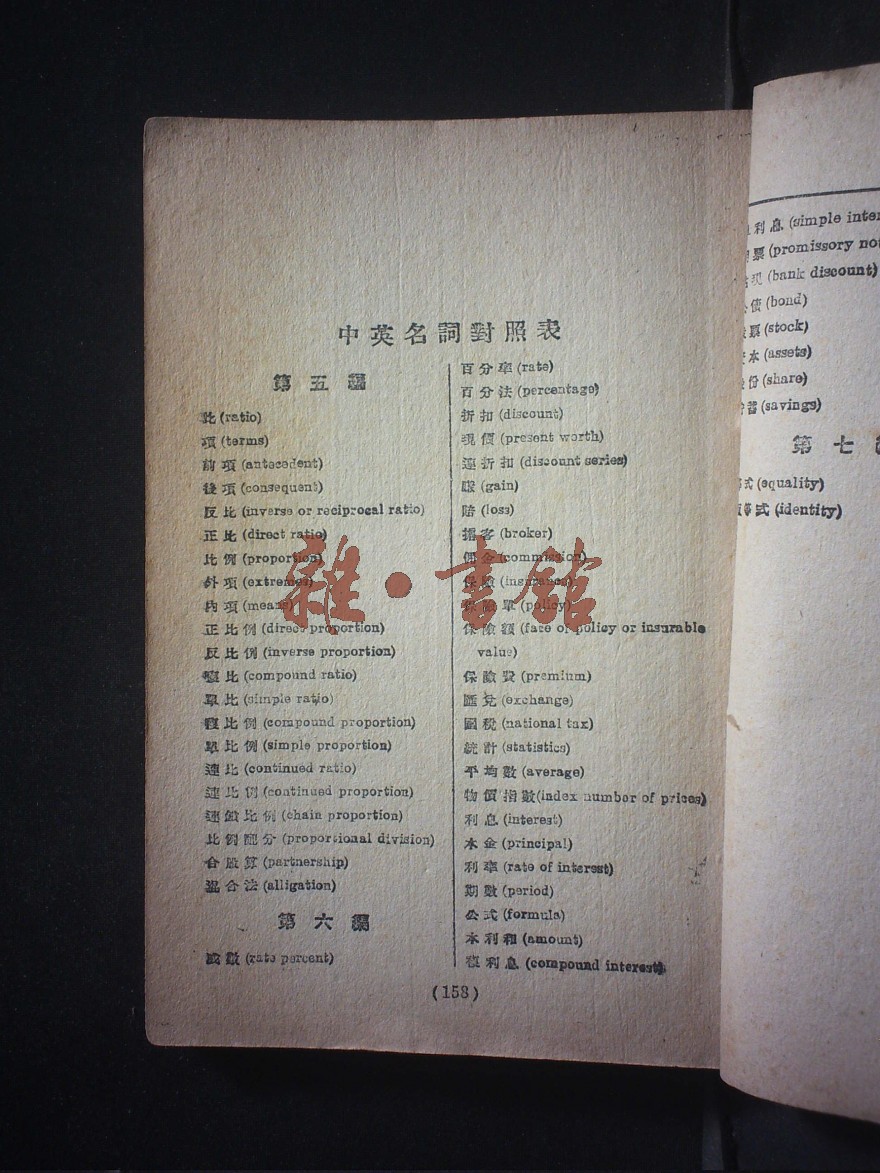 中英名詞對照表
第五編
比 (ratio)
項 (terms)
前項 (antecedent)
後項 (consequent)
反比 (inverse or reciprocal ratio)
正比 (direct ratio)
比例 (proportion)
外項 (extremes)
內項 (means)
正比例 (direct proportion)
反比例 (inverse proportion)
複比 (compound ratio)
單比 (simple ratio)
複比例 (compound proportion)
單比例 (simple proportion)
連比 (continued ratio)
連比例 (continued proportion)
連鎖比例 (chain proportion)
比例配分 (proportional division)
合股算 (partnership)
混合法 (alligation)
第六編
成數 (rate percent)
百分率 (rate)
百分法 (percentage)
折扣 (discount)
現價 (present worth)
連折扣 (discount series)
賺 (gain)
賠 (loss)
掮客 (broker)
佣金 (commission)
保險 (insurance)
保險單 (policy)
保險額 (face of policy or insurable
value)
保險費 (premium)
匯兌 (exchange)
國稅 (national tax)
統計 (statistics)
平均數 (average)
物價指數 (index number of prices)
利息 (interest)
本金 (principal)
利率 (rate of interest)
期數 (period)
公式 (formula)
本利和 (amount)
複利息 (compound interest)
(158)
利息 (simple inter
票 (promissory not
現 (bank discount)
債 (bond)
票 (stock)
本 (assets)
份 (share)
蓄 (savings)
第七
式 (equality)
等式 (identity)
雜·書館